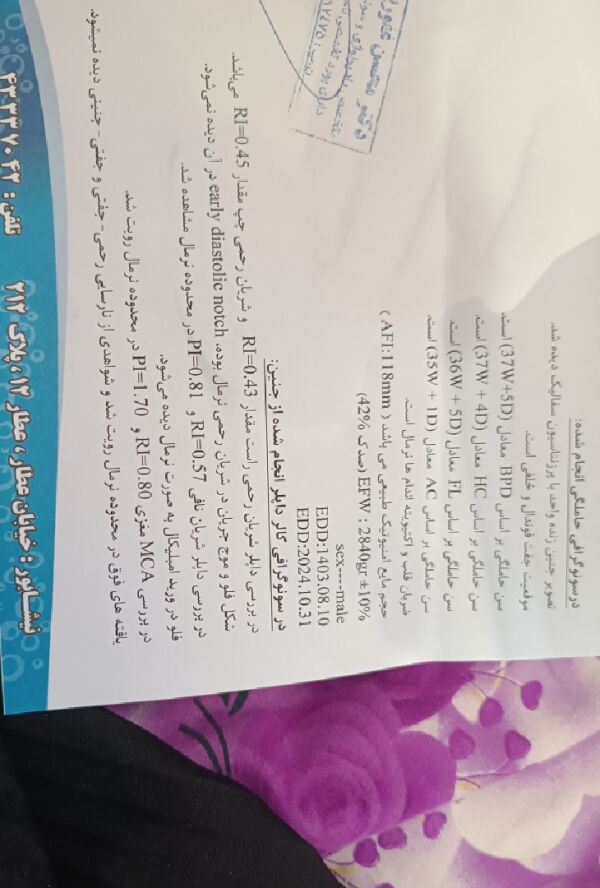 درسونوگرافی حاملگی انجام شده:
تصویر جنین زنده واحد با پرزنتاسیون سفالیک دیده شد.
موقعیت جفت فوندال و خلفی است.
سن حاملگی بر اساس BPD معادل (37W+5D) است.
سن حاملگی بر اساس HC معادل (37W + 4D) است.
سن حاملگی بر اساس FL معادل (36W + 5D) است.
سن حاملگی بر اساس AC معادل (35W + 1D) است.
ضربان قلب و اکتیویته اندام ها نرمال است.
حجم مایع امنیوتیک طبیعی می باشد ( AFI:118mm )
EFW : 2840gr±10% (صدک 42%)
sex----male
EDD:1403.08.10
EDD:2024.10.31
در سونوگرافی کالر داپلر انجام شده از جنین:
در بررسی داپلر شریان رحمی راست مقدار RI=0.43 و شریان رحمی چپ مقدار RI=0.45 می‌باشد.
شکل فلو و موج جریان در شریان رحمی نرمال بوده، early diastolic notch در آن دیده نمی‌شود.
در بررسی داپلر شریان نافی RI=0.57 و PI=0.81 در محدوده نرمال مشاهده شد.
فلو در ورید امبلیکال به صورت نرمال دیده می‌شود.
در بررسی MCA مغزی RI=0.80 و PI=1.70 در محدوده نرمال رویت شد.
یافته های فوق در محدوده نرمال رویت شد و شواهدی از نارسایی رحمی- جفتی و جفتی- جنینی دیده نمیشود.
دکتر محسن
نیشابور: خیابان عطار، عطار ۱۳، پلاک ۲۱۲ تلفن: ۴۳۳۳۷۰۴۲